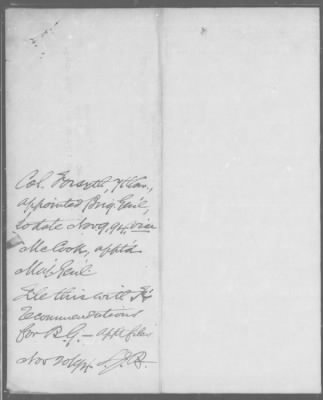 Col. Forsyth, 7 Cav.,
appointed Brig. Gen'l,
to date Nov 9, 94, vice
McCook, app'td
Maj Gen'l
File this with
recommendations
for B.G. — app't files
Nov